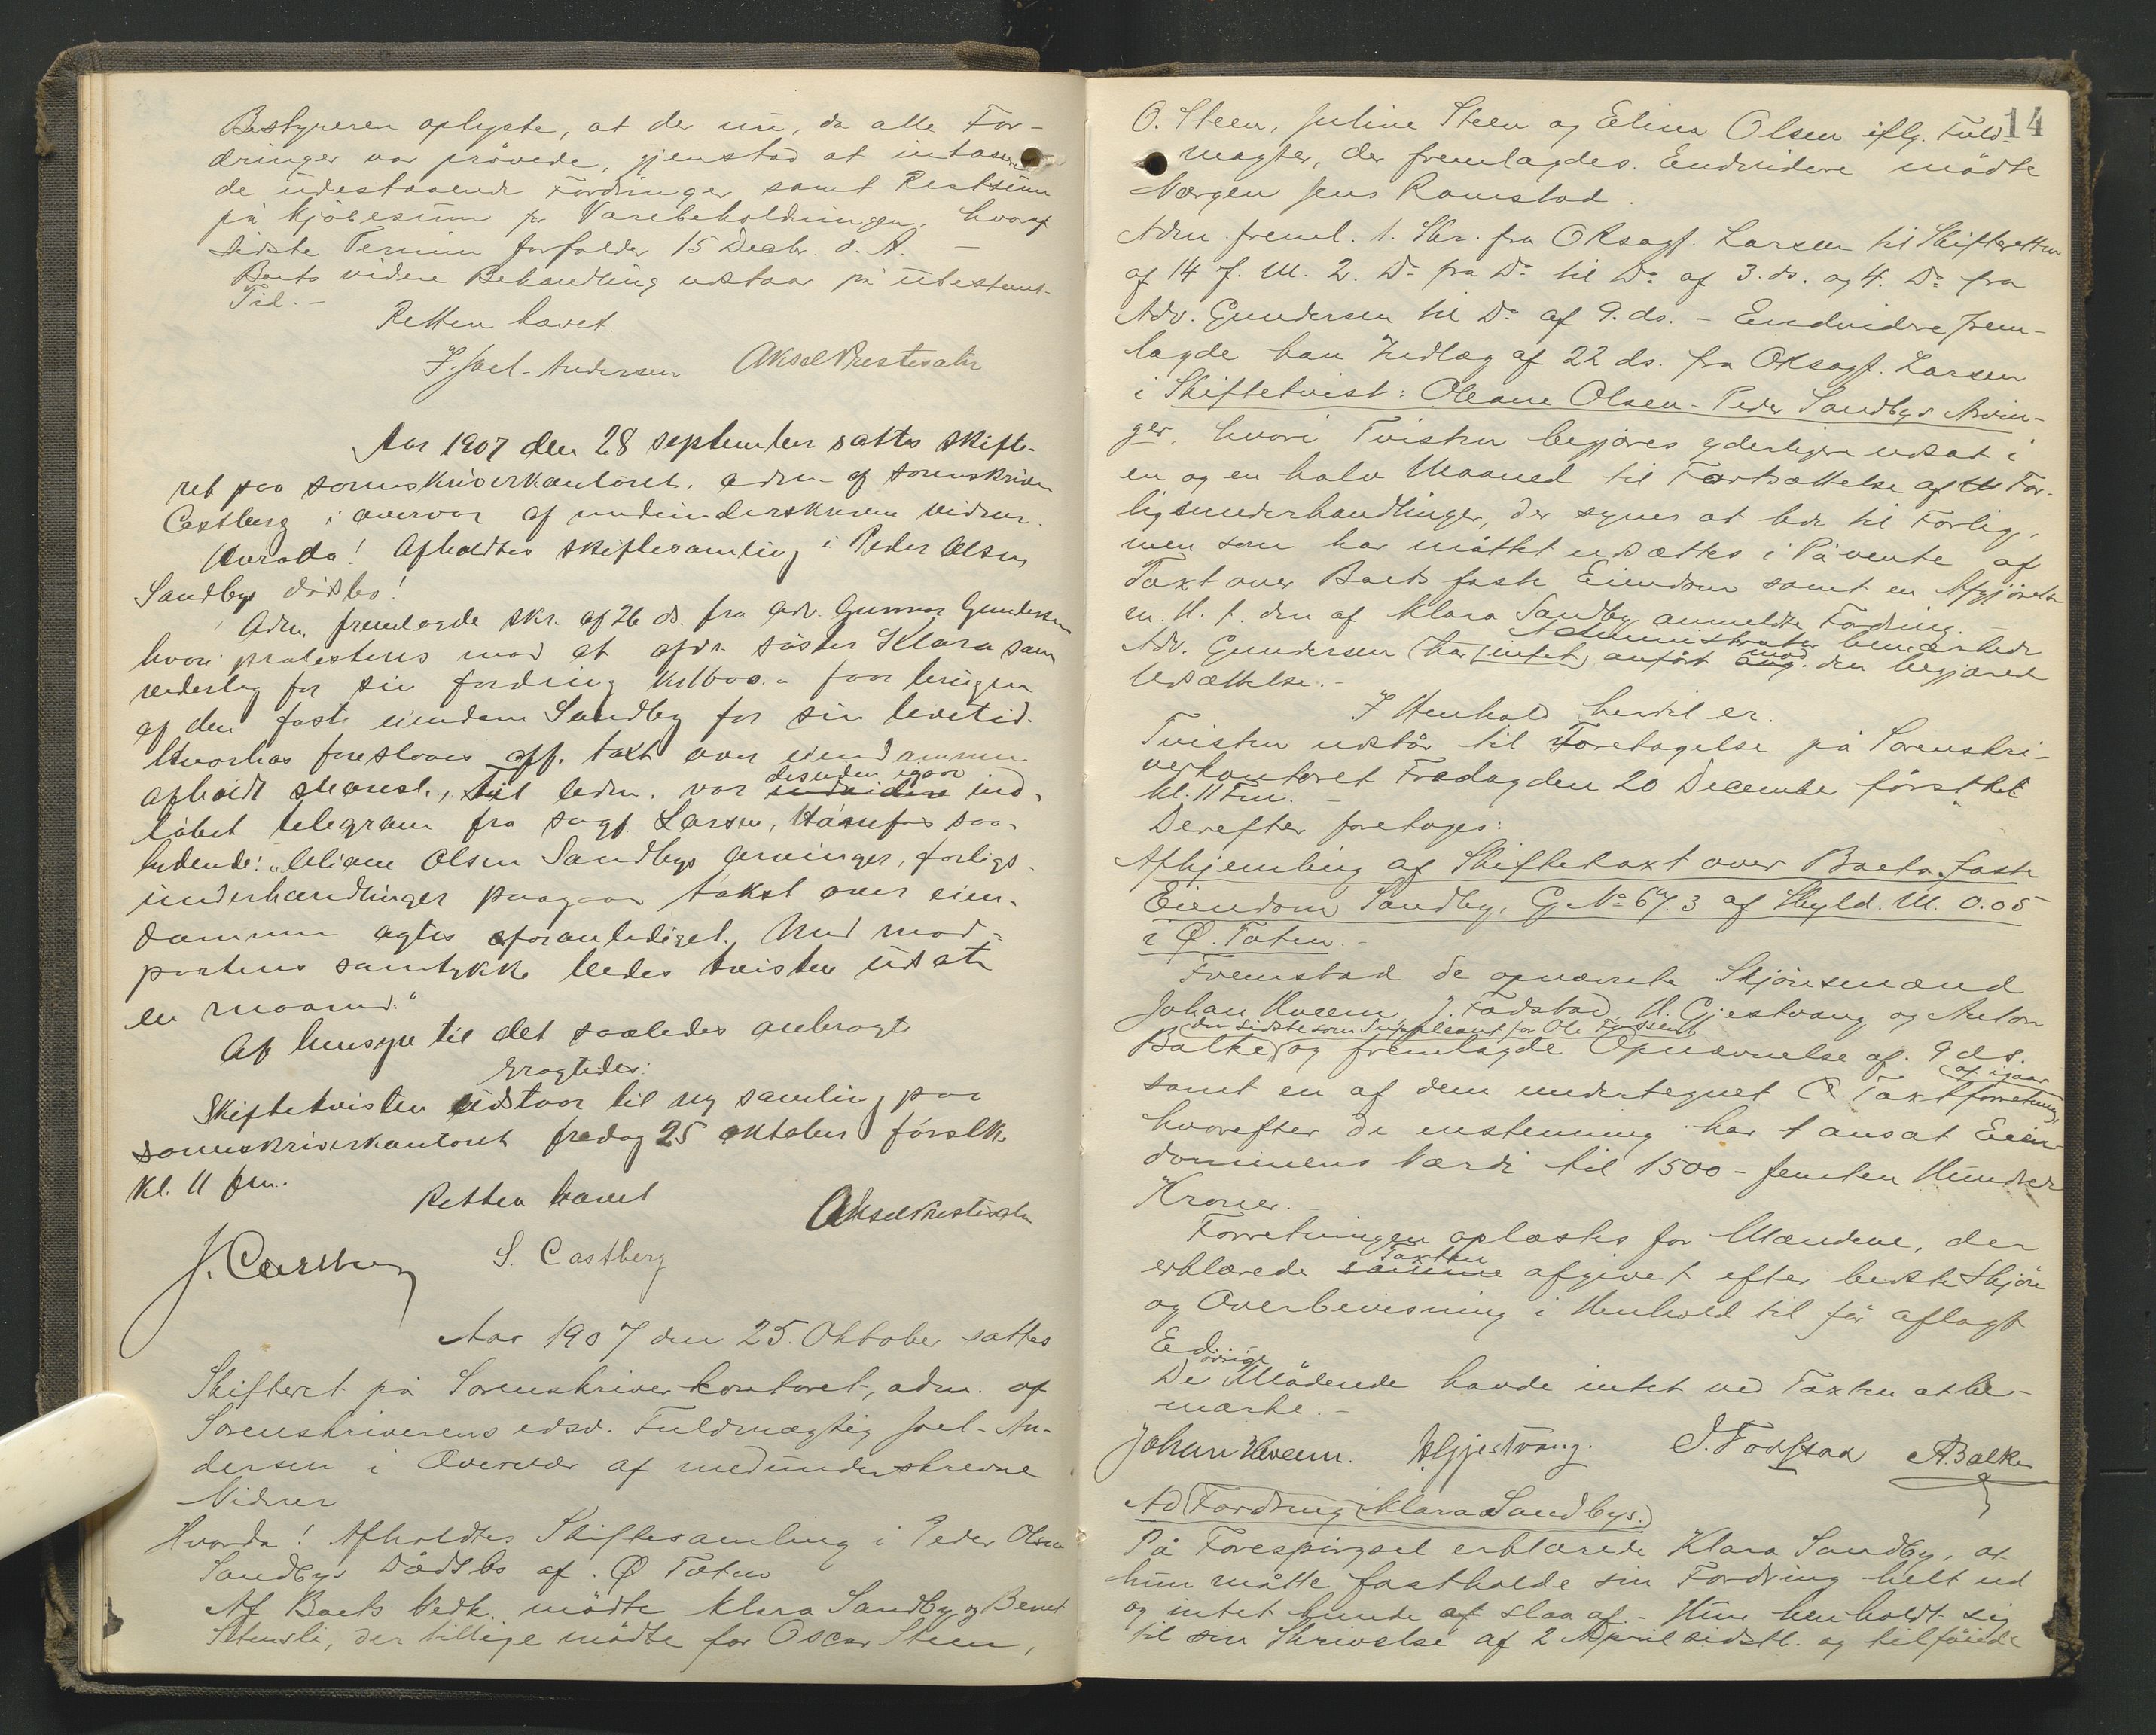 Bestyreren oplyste, at der nu, da alle For-
dringer var prövede, gjenstod at incasere
de udestaaende Fordringer samt Restsum
på Kjöbesum for Varebeholdningen, hvoraf
sidste Termin forfalder 15 Decbr. d. A. –
Boets videre Behandling udstaar på ubestemt
Tid. –
Retten hævet.
J. Joel-Andersen Aksel Prestesater
Aar 1907 den 28 september sattes skifte-
ret paa sorenskriverkontoret, adm. af sorenskriver
Castberg i overvær af medunderskrevne vidner.
Hvorda! Afholdtes skiftesamling i Peder Olsen
Sandbys dödsbo!
Adm. fremlagde skr. af 26 ds. fra adv. Gunnar Gundersen
hvori protesteres mod at afdr. söster Klara som
vederlag for sin fordring faar brugen
af den faste eiendom Sandby for sin levetid.
Hvorhos foreslaaes off. takt over eiendommen
afholdt snarest. Til adm. var desuden igaar ind-
löbet telegram fra sagf. Larsen, saa-
lydende: "Oleane Olsen Sandbys arvinger, forligs-
underhandlinger paagaar takst over eien-
dommen agtes foranlediget. Med mod-
partens samtykke bedes tvisten udsat
en maaned."
Af hensyn til det saaledes anbragte
eragtedes:
Skiftetvisten udstaar til ny samling paa
sorenskriverkontoret fredag 25 oktober förstk.
kl. 11 fm.
Retten hævet Aksel Prestesater
J. Castberg S. Castberg
Aar 1907 den 25. Oktober sattes
Skifteret på Sorenskriverkontoret, adm. af
Sorenskriverens edsv. Fuldmægtig Joel-An-
dersen i Overvær af medunderskrevne
Vidner
Hvorda! Afholdtes Skiftesamling i Peder Olsen
Sandbys Dödsbo af Ø Toten
Af Boets Vedk. mödte Klara Sandby og Bernt
Stensli, der tillige mödte for Oscar Steen,
14
O. Steen, Juline Steen og Elina Olsen iflg. Fuld-
magter, der fremlagdes. Endvidere mödte
Værgen Jens Ramstad.
Adm. freml. 1. Skr. fra ORsagf. Larsen til Skifteretten
af 14 f. M. 2. Do fra Do til Do af 3. ds. og 4. Do fra
Adv. Gundersen til Do af 9. ds. – Endvidere frem-
lagde han Indlæg af 22 ds. fra ORsagf. Larsen
i Skiftetvist: Oleane Olsen – Peder Sandbys Arvin-
ger, hvori Tvisten begjæres yderligere udsat i
en og en halv Maaned til Fortsættelse af For-
ligsunderhandlinger, der synes at lede til Forlig,
men som har måttet udsættes i Påvente af
Taxt over Boets faste Eiendom samt en Afgjörelse
m. H. t. den af Klara Sandby anmeldte Fordring. –
Administrator bemærkede
Adv. Gundersen har intet anfört mod den begjærede
Udsættelse. –
I Henhold hertil er.
Tvisten udstår til Foretagelse på Sorenskri-
verkontoret Fredag den 20 December förstk.
kl. 11 Fm. –
Derefter foretoges:
Afhjemling af Skiftetaxt over Boets faste
Eiendom Sandby, G. No 67.3 af Skyld. M. 0.05
i Ø. Toten. –
Fremstod de opnævnte Skjönsmænd
Johan Hveem, J. Fodstad, H. Gjestvang og Anton
den sidste som Suppleant for Ole
Balke og fremlagde Opnævnelse af 9 ds.
samt en af dem undertegnet Taxtforretning af igaar,
hvorefter de enstemmig har ansat Eien-
dommens Værdi til 1500 – femten Hundrede
Kroner. –
Forretningen oplæstes for Mændene, der
erklærede samme Taxten afgivet efter bedste Skjön
og Overbevisning i Henhold til för aflagt
Ed.
De övrige Mödende havde intet ved Taxten at be-
mærke. –
Johan Hveem. H Gjestvang. J. Fodstad A. Balke
Ad Fordring Klara Sandbys.
På Forespörgsel erklærede Klara Sandby, at
hun måtte fastholde sin Fordring helt ud
og intet kunde slaa af. – Hun henholdt sig
til sin Skrivelse af 2 April sidstl. og tilföiede